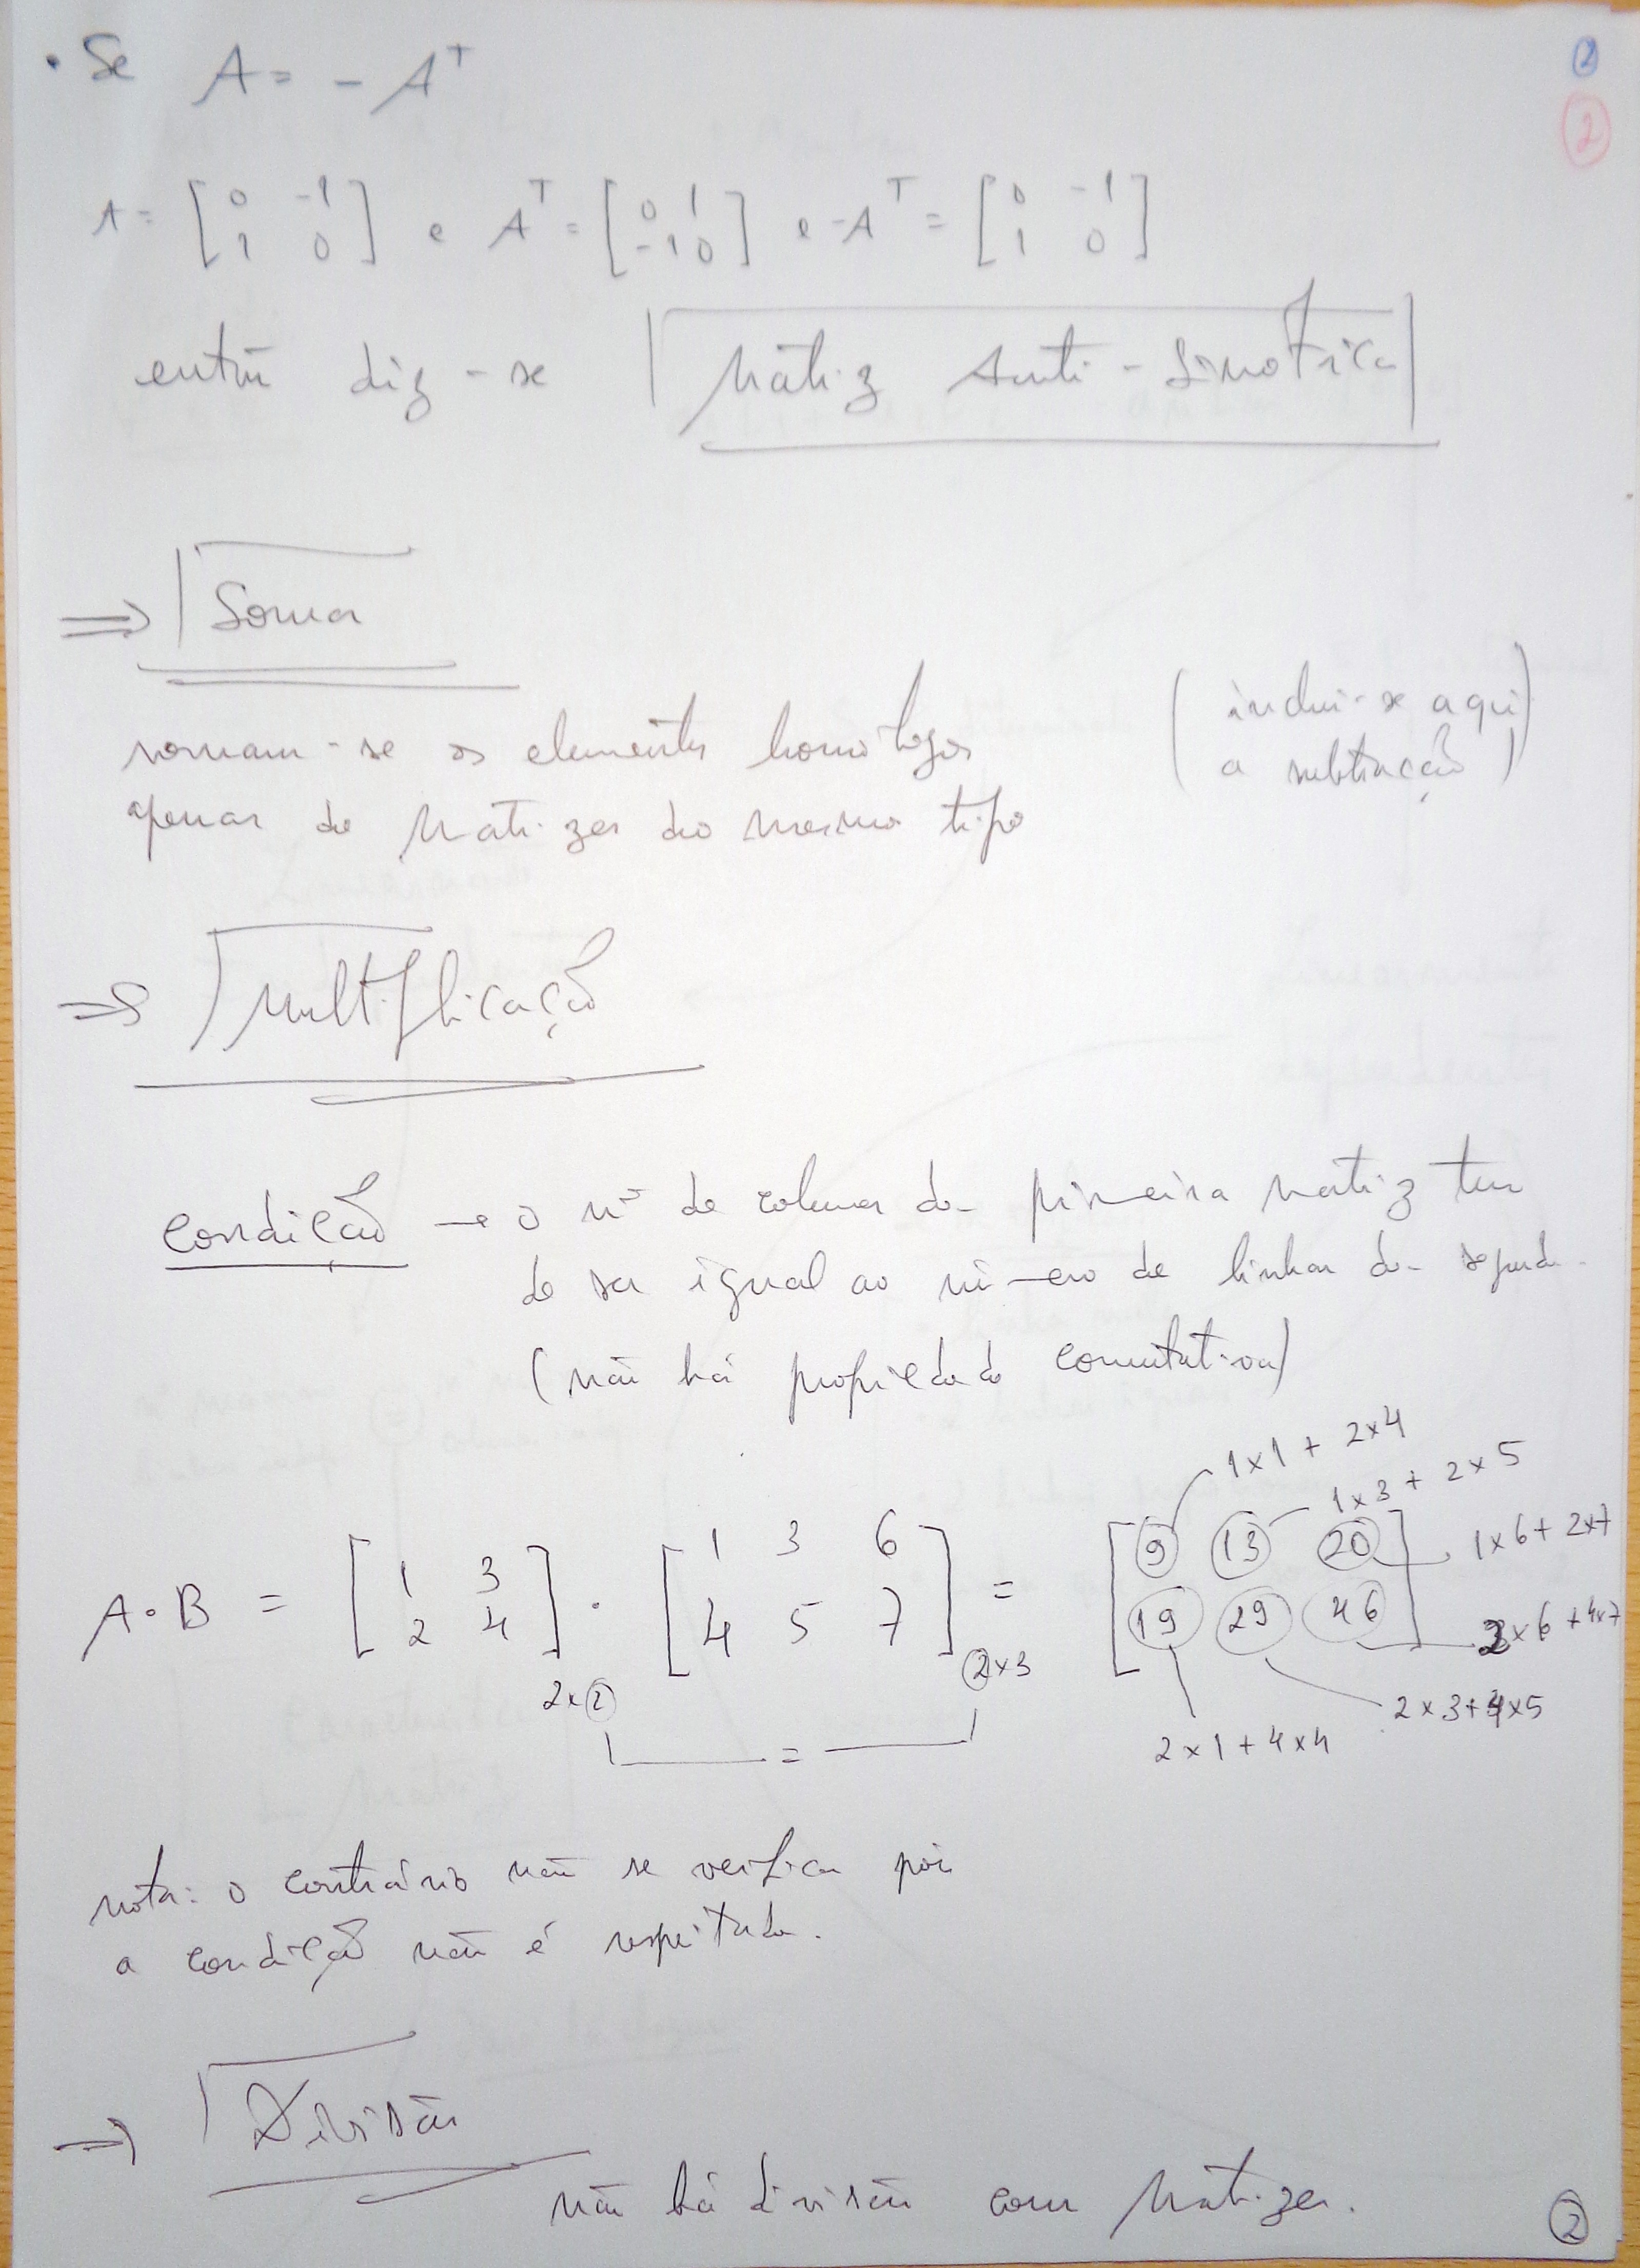 • Se A = - A^T
2
2
A = [0 -1; 1 0] e A^T = [0 1; -1 0] e -A^T = [0 -1; 1 0]
então diz-se Matriz Anti-Simétrica
⇒ Soma
somam-se os elementos homólogos (inclui-se aqui
apenas de Matrizes do mesmo tipo a subtração)
⇒ Multiplicação
Condição → o nº de colunas da primeira matriz tem
de ser igual ao número de linhas da segunda.
(não há propriedade comutativa)
1x1 + 2x4
1x3 + 2x5
A·B = [1 3; 2 4] · [1 3 6; 4 5 7] = [9 13 20; 19 29 46] 1x6 + 2x7
2x6 + 4x7
2x2 = 2x3
2x1 + 4x4 2x3+4x5
nota: o contrário não se verifica pois
a condição não é respeitada.
⇒ Divisão
não há divisão com Matrizes.
2